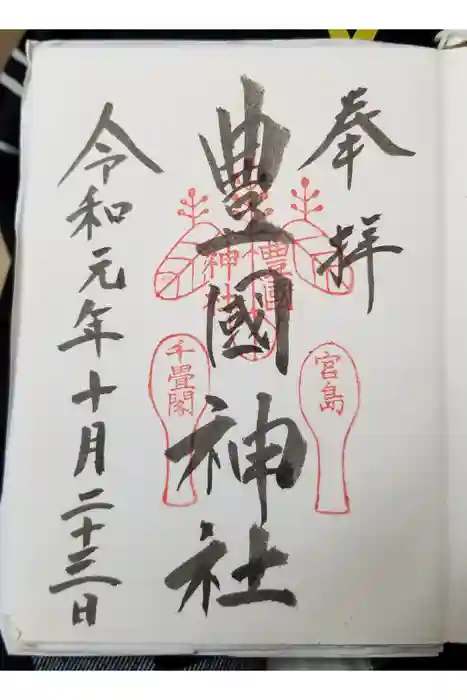 奉拝
豊國神社
令和元年十月二十三日
豊國
神社
宮島
千畳閣